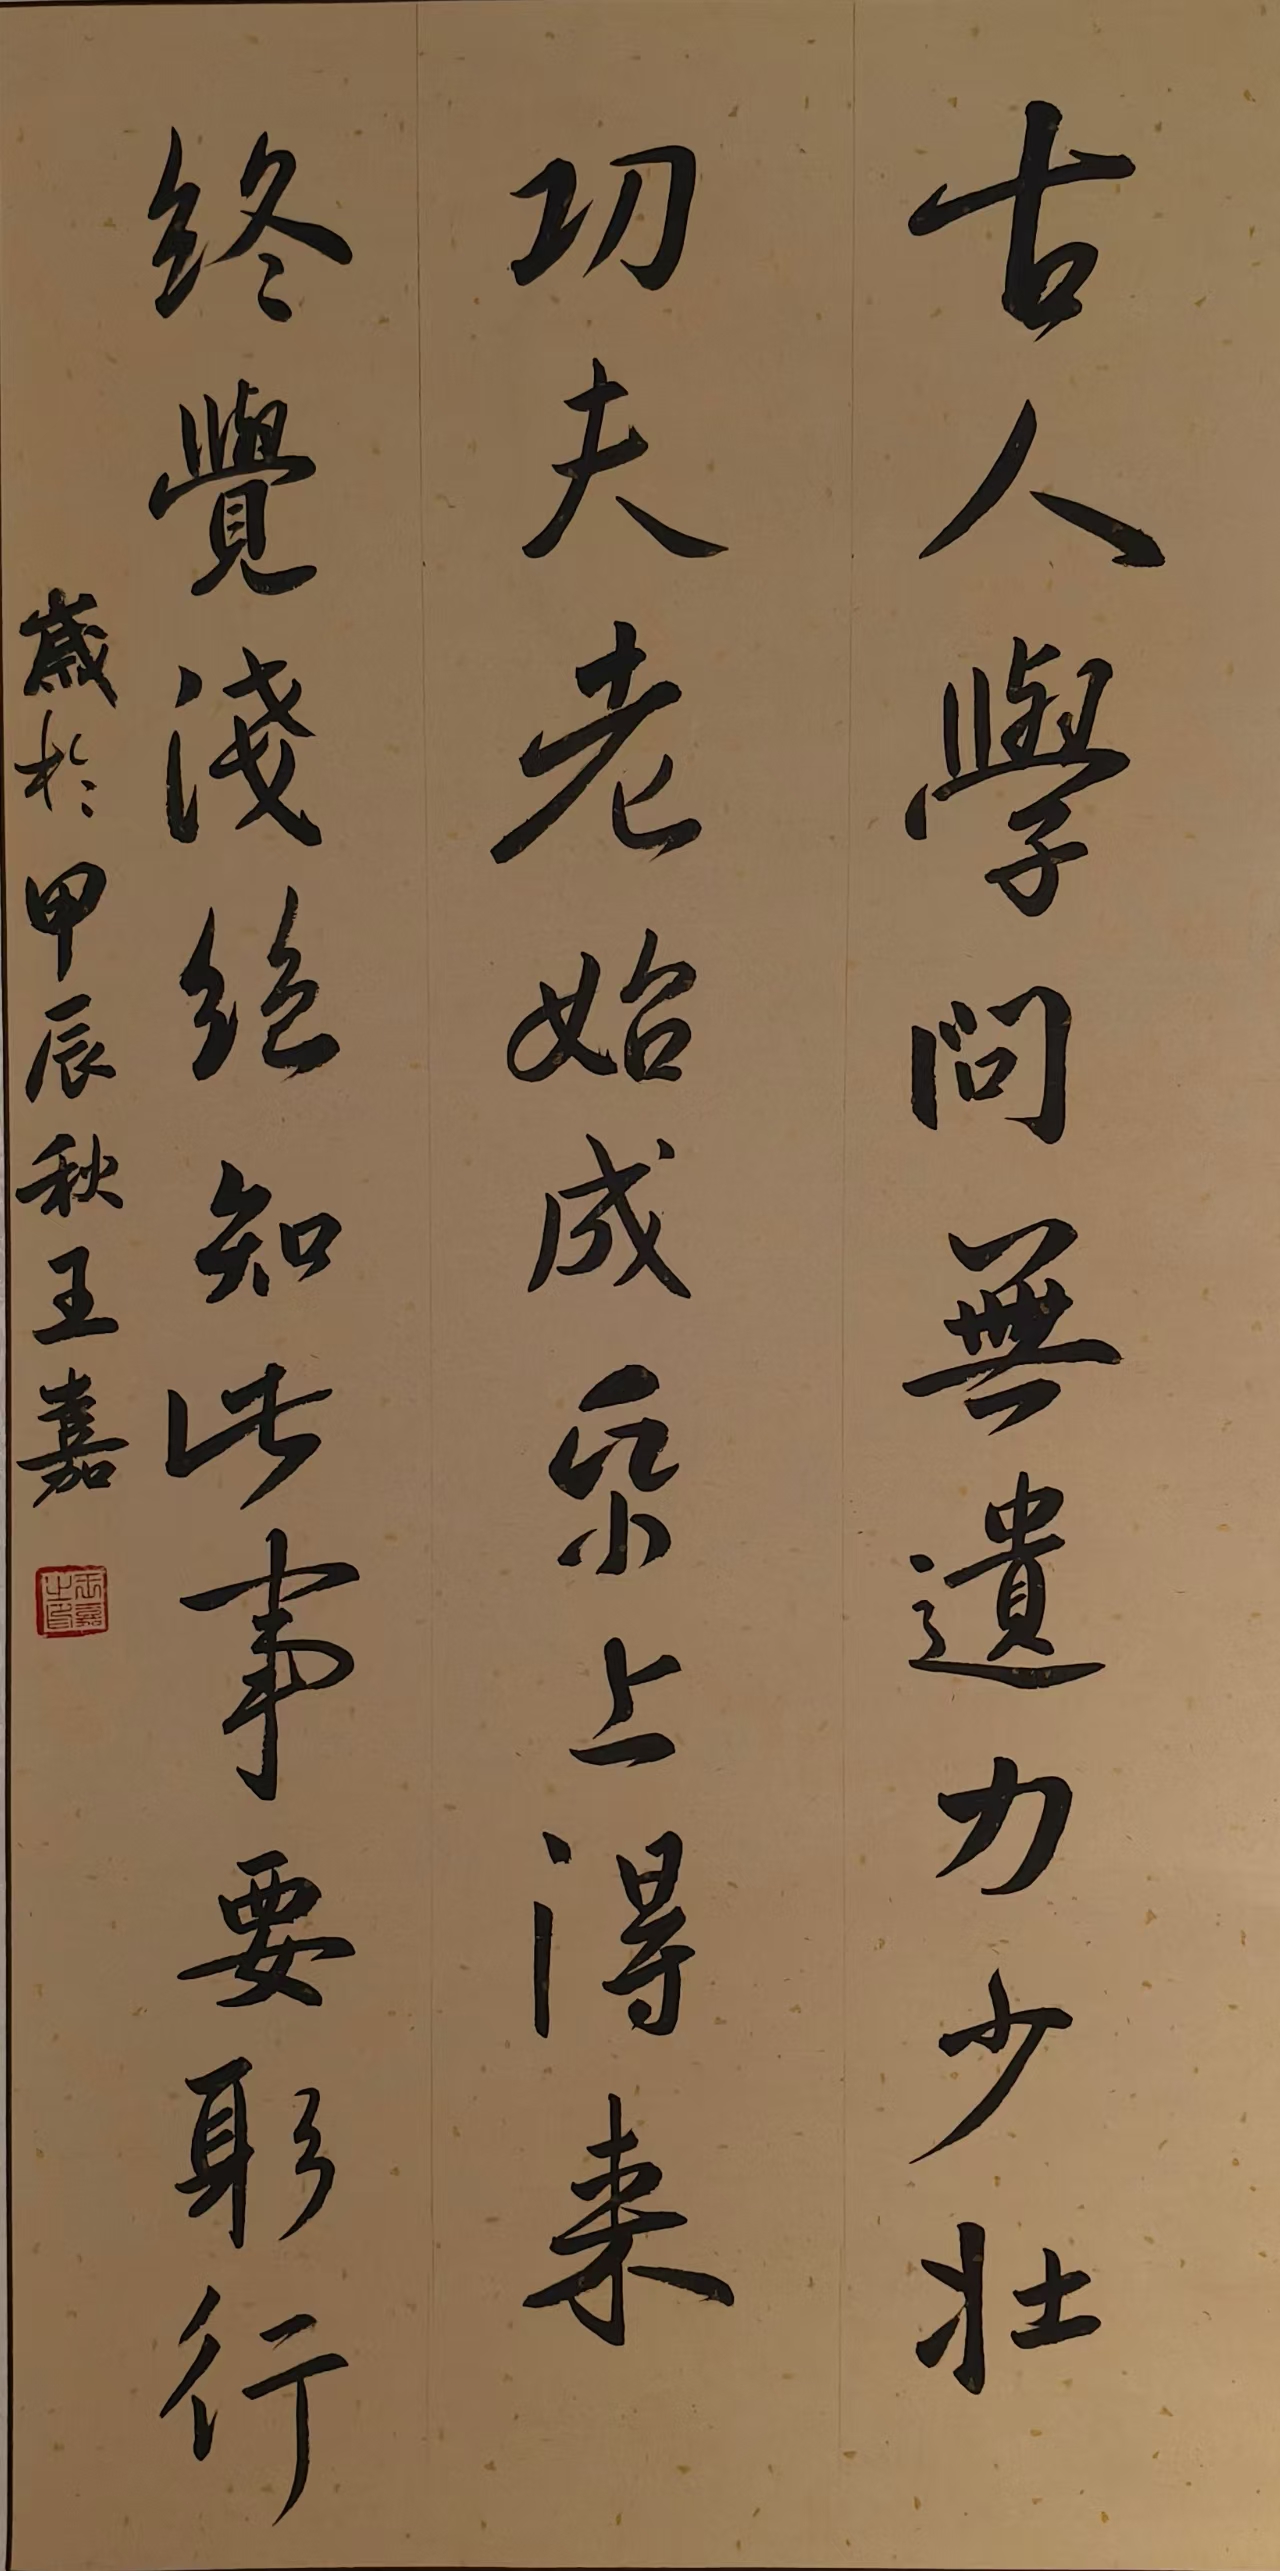 古人學問無遺力少壮
功夫老始成帋上得来
終覺淺絕知此事要躬行
歲於甲辰秋王嘉
王嘉之印